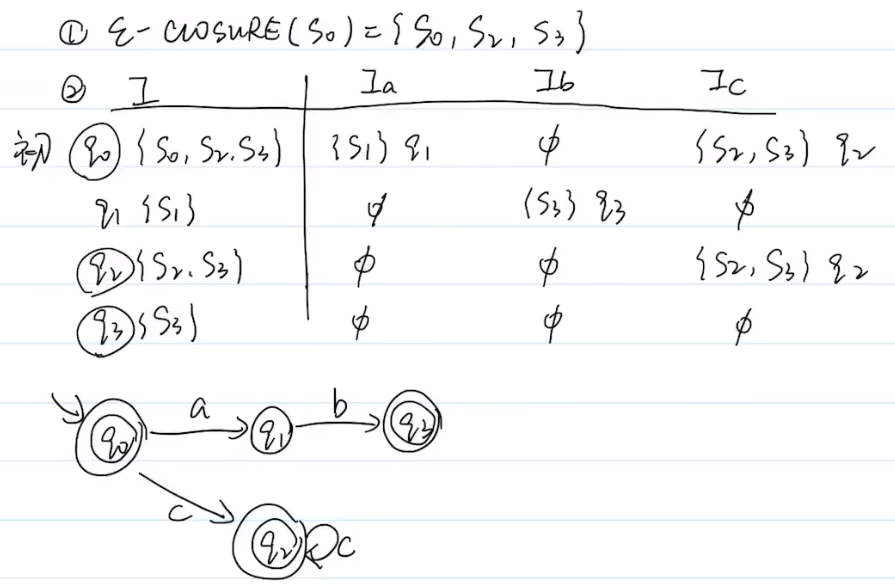 ① ε-CLOSURE(S0)={S0, S2, S3}
② I Ia Ib Ic
初 q0 {S0, S2, S3} {S1} q1 ϕ {S2, S3} q2
q1 {S1} ϕ {S3} q3 ϕ
q2 {S2, S3} ϕ ϕ {S2, S3} q2
q3 {S3} ϕ ϕ ϕ
q0 a q1 b q3
c q2 c